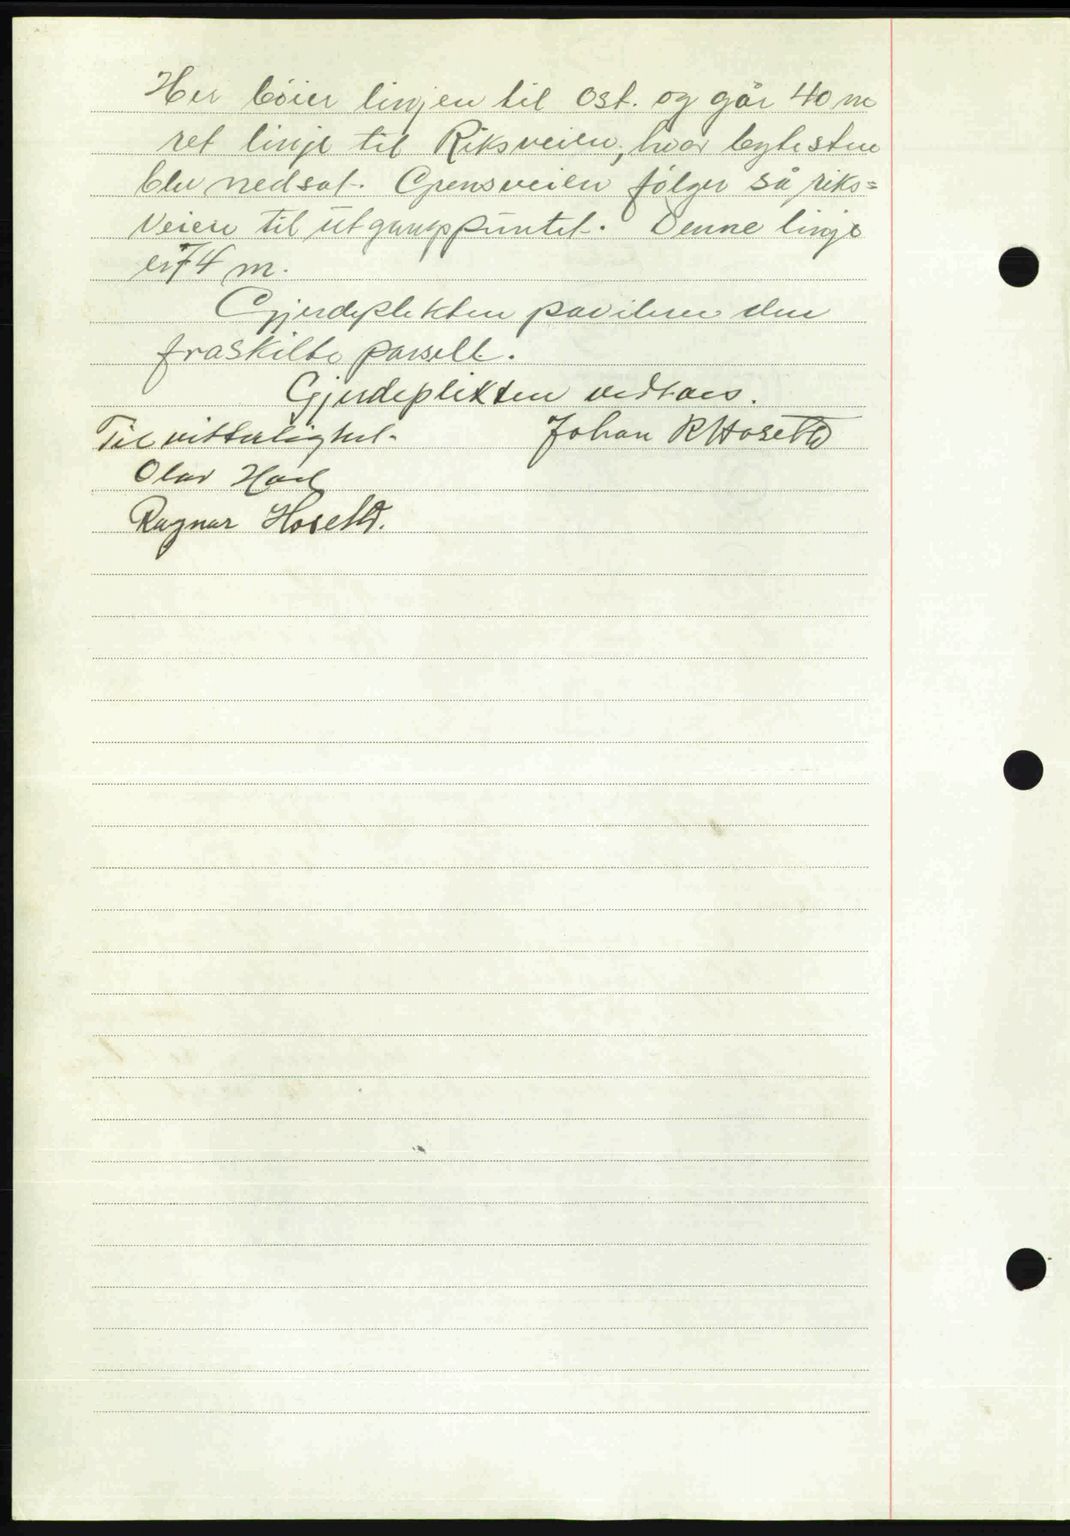 Her bøier linjen til Øst. og går 40 m
ret linje til Riksveien, hvor bytesten
blev nedsat. Grensveien følger så riks=
veien til utgangspunktet. Denne linje
er 74 m.
Gjerdeplikten påviler den
fraskilte parsell.
Gjerdeplikten vedtaes.
Til vitterlighet. Johan R Hoseth
Olav
Ragnar Hoseth.